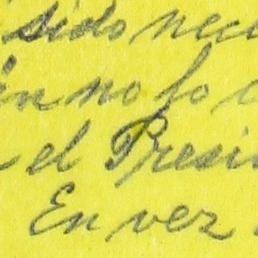 sido nece
én no fo
el Presi
En vez